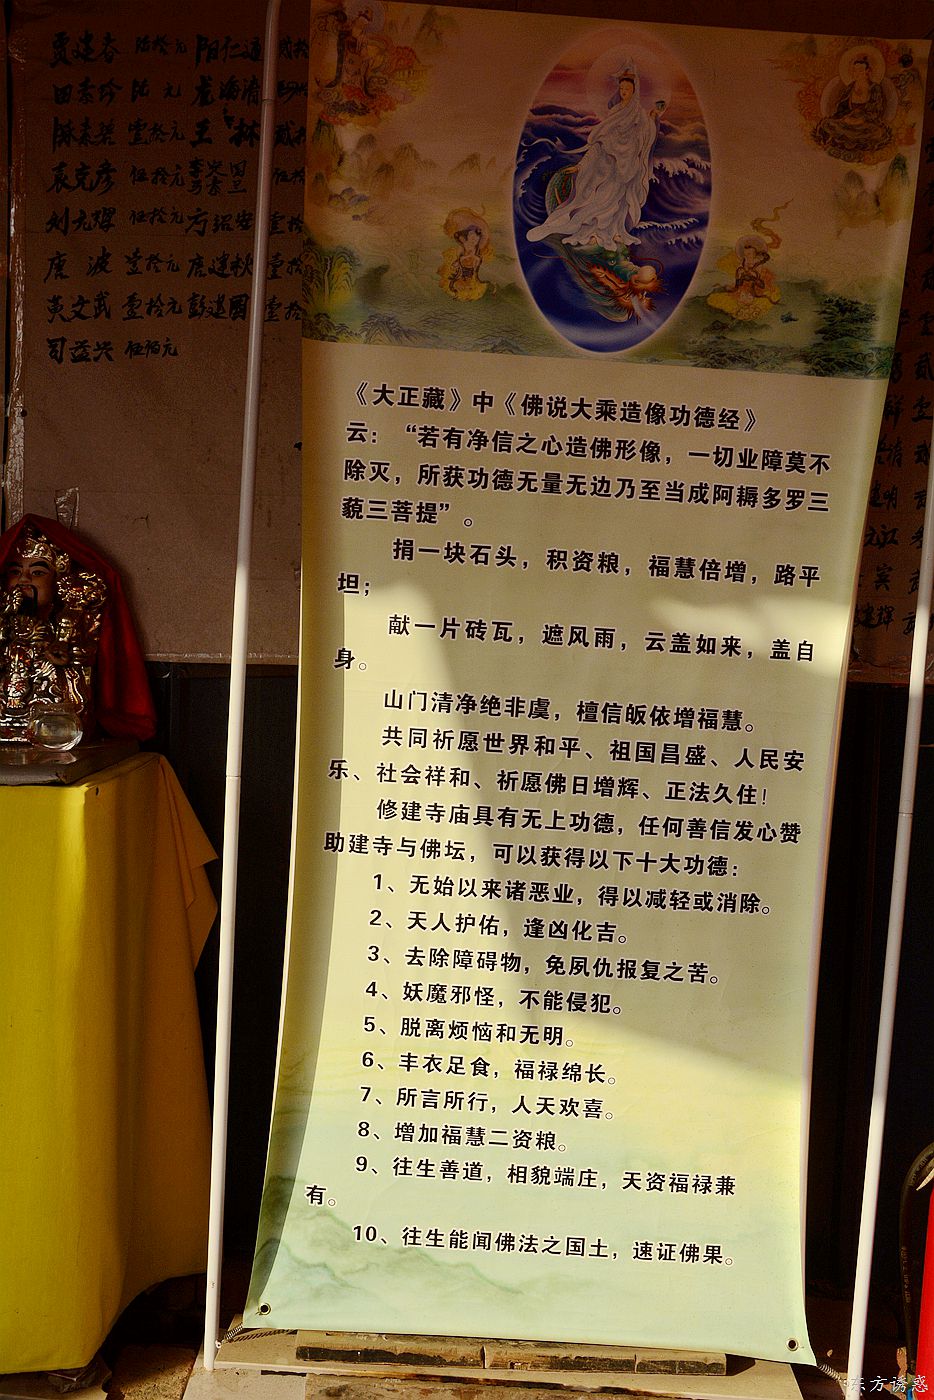 贾建春 陆拾元 阳仁通 贰拾
田素珍 陆 元 龙海清
陈素碧 壹拾元 王 林 贰拾
袁克彦 伍拾元 伍拾
刘光辉 伍拾元 方绍安 壹拾
唐 波 壹拾元 唐建秋 壹拾
黄文武 壹拾元 彭建国 壹拾
司益兴 伍佰元
《大正藏》中《佛说大乘造像功德经》
云：“若有净信之心造佛形像，一切业障莫不
除灭，所获功德无量无边乃至当成阿耨多罗三
藐三菩提”。
捐一块石头，积资粮，福慧倍增，路平
坦；
献一片砖瓦，遮风雨，云盖如来，盖自
身。
山门清净绝非虞，檀信皈依增福慧。
共同祈愿世界和平、祖国昌盛、人民安
乐、社会祥和、祈愿佛日增辉、正法久住！
修建寺庙具有无上功德，任何善信发心赞
助建寺与佛坛，可以获得以下十大功德：
1、无始以来诸恶业，得以减轻或消除。
2、天人护佑，逢凶化吉。
3、去除障碍物，免夙仇报复之苦。
4、妖魔邪怪，不能侵犯。
5、脱离烦恼和无明。
6、丰衣足食，福禄绵长。
7、所言所行，人天欢喜。
8、增加福慧二资粮。
9、往生善道，相貌端庄，天资福禄兼
有。
10、往生能闻佛法之国土，速证佛果。
东方诱惑